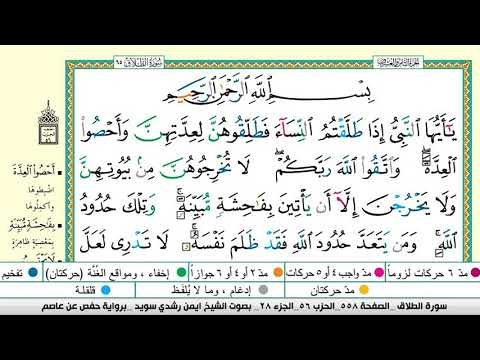 سُورَةُ الطَّلَاقِ ٦٥
بِسْمِ اللَّهِ الرَّحْمَٰنِ الرَّحِيمِ
يَا أَيُّهَا النَّبِيُّ إِذَا طَلَّقْتُمُ النِّسَاءَ فَطَلِّقُوهُنَّ لِعِدَّتِهِنَّ وَأَحْصُوا
الْعِدَّةَ ۖ وَاتَّقُوا اللَّهَ رَبَّكُمْ ۖ لَا تُخْرِجُوهُنَّ مِنْ بُيُوتِهِنَّ
وَلَا يَخْرُجْنَ إِلَّا أَنْ يَأْتِينَ بِفَاحِشَةٍ مُبَيِّنَةٍ ۚ وَتِلْكَ حُدُودُ
اللَّهِ ۚ وَمَنْ يَتَعَدَّ حُدُودَ اللَّهِ فَقَدْ ظَلَمَ نَفْسَهُ ۚ لَا تَدْرِي لَعَلَّ
أَحْصُوا الْعِدَّةَ
اضبطوها
وأكملوها
بِفَاحِشَةٍ مُبَيِّنَةٍ
بمعصية ظاهرة
مدّ ٦ حركات لزوماً
مدّ واجب ٤ أو ٥ حركات
مدّ ٢ أو ٤ أو ٦ جوازاً
إخفاء ، ومواقع الغُنَّة (حركتان)
تفخيم
مدّ حركتان
إدغام ، وما لا يُلفَظ
قلقلة
سورة الطلاق _الصفحة ٥٥٨ _الحزب ٥٦ _الجزء ٢٨ _ بصوت الشيخ ايمن رشدي سويد _ برواية حفص عن عاصم